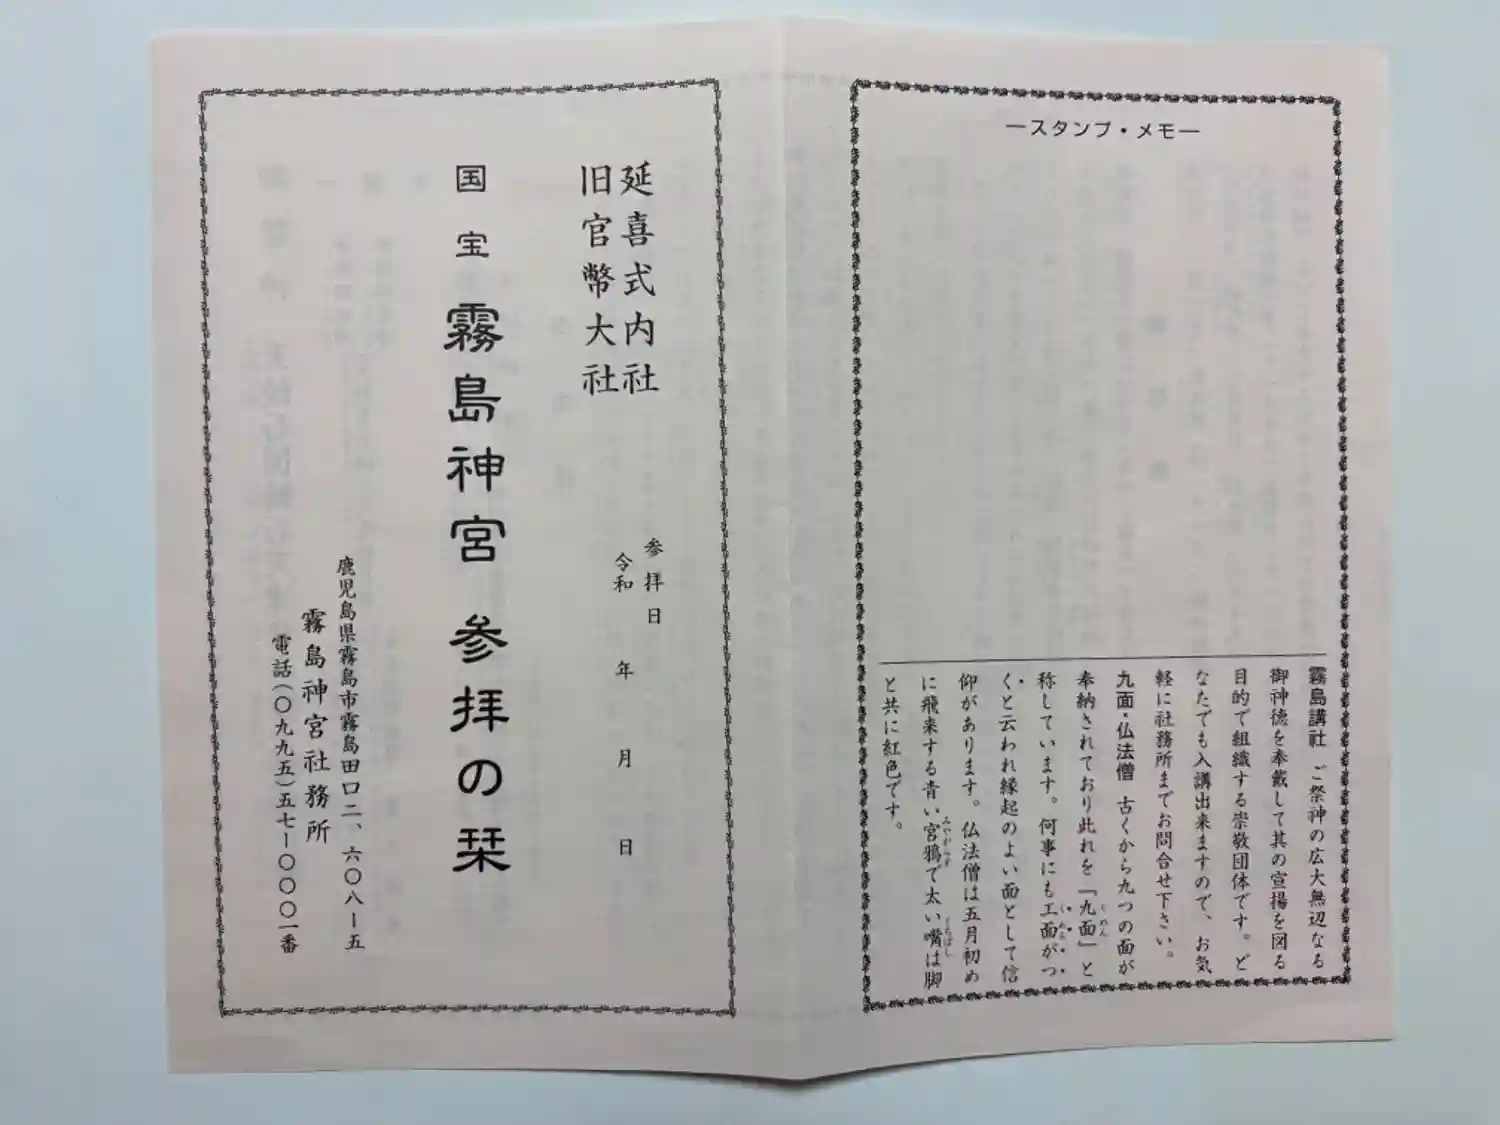 ースタンプ・メモー
霧島講社 ご祭神の広大無辺なる
御神徳を奉戴して其の宣揚を図る
目的で組織する崇敬団体です。ど
なたでも入講出来ますので、お気
軽に社務所までお問合せ下さい。
九面・仏法僧 古くから九つの面が
奉納されており此れを「九面」と
称しています。何事にも工面がつ
くと云われ縁起のよい面として信
仰があります。仏法僧は五月初め
に飛来する青い宮鴉で太い嘴は脚
と共に紅色です。
延喜式内社
旧官幣大社
参拝日
令和 年 月 日
国宝 霧島神宮 参拝の栞
鹿児島県霧島市霧島田口二、六〇八ー五
霧島神宮社務所
電話(〇九九五)五七ー〇〇〇一番